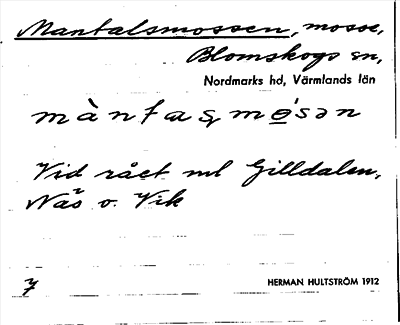 Mantalsmossen, mosse,
Blomskogs sn,
Nordmarks hd, Värmlands län
màntaʂmo̱'sən
Vid rået ml Gilldalen,
Näs o. Vik
7
HERMAN HULTSTRÖM 1912